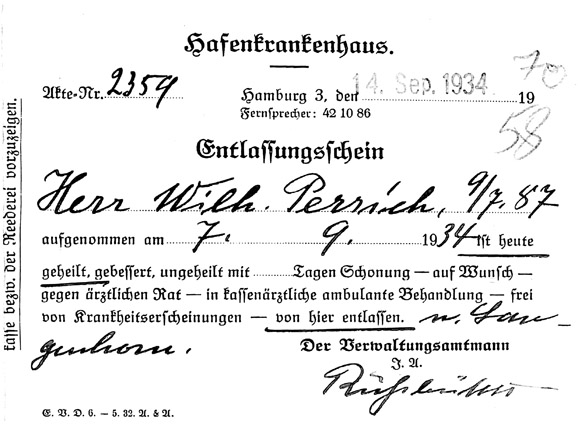 Hafenkrankenhaus.
70
Akte-Nr. 2359
Hamburg 3, den 14. Sep. 1934 19
58
Fernsprecher: 42 10 86
Entlassungsschein
Herr Wilh. Perrich, 9/7. 87
aufgenommen am 7. 9. 1934 ist heute
geheilt, gebessert, ungeheilt mit ........ Tagen Schonung — auf Wunsch —
gegen ärztlichen Rat — in kassenärztliche ambulante Behandlung — frei
von Krankheitserscheinungen — von hier entlassen. n. Lan-
genhorn.
Der Verwaltungsamtmann
J. A.
E. V. D. 6. — 5. 32. A. & A.
kasse bezw. der Reederei vorzuzeigen.